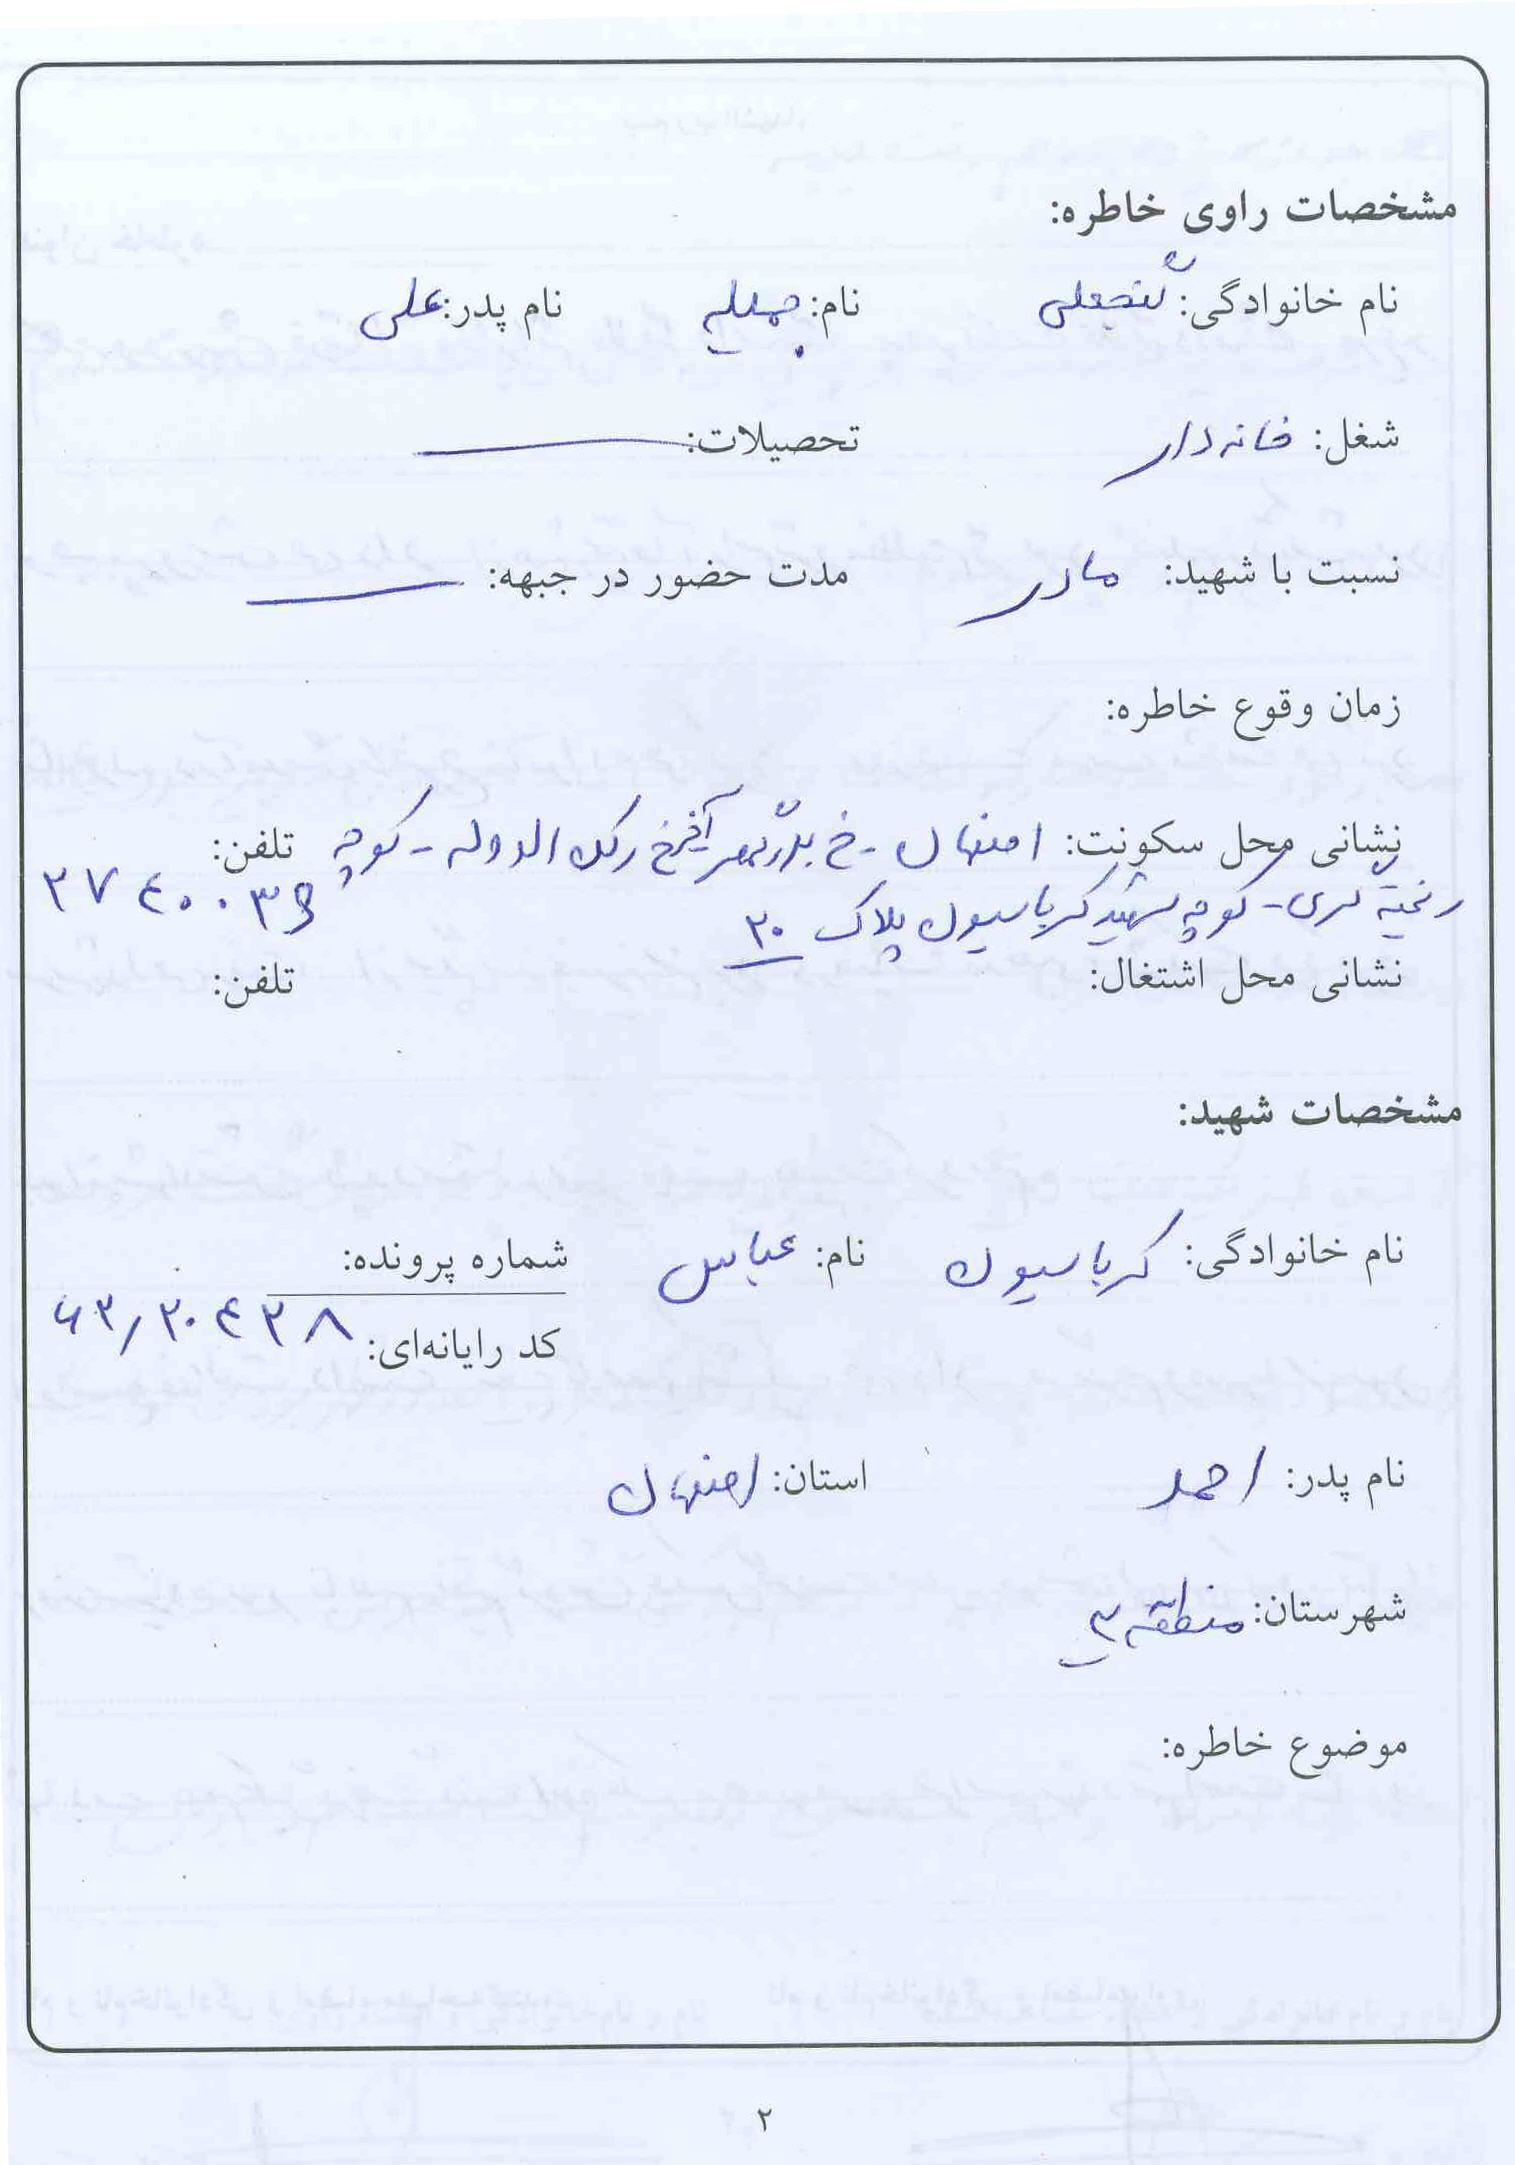 مشخصات راوی خاطره:
نام خانوادگی: نام: جمیله نام پدر: علی
شغل: خانه دار تحصیلات:
نسبت با شهید: مادر مدت حضور در جبهه:
زمان وقوع خاطره:
نشانی محل سکونت: اصفهان - خ بزرگمهر - آخر خ رکن الدوله - کوچه تلفن:
ریخته گری - کوچه شهید کرباسیون پلاک ۲۰
نشانی محل اشتغال: تلفن:
مشخصات شهید:
نام خانوادگی: کرباسیون نام: عباس شماره پرونده:
کد رایانه‌ای: ۶۳/۲۰۴۲۸
نام پدر: احمد استان: اصفهان
شهرستان: منطقه ۳
موضوع خاطره:
۲